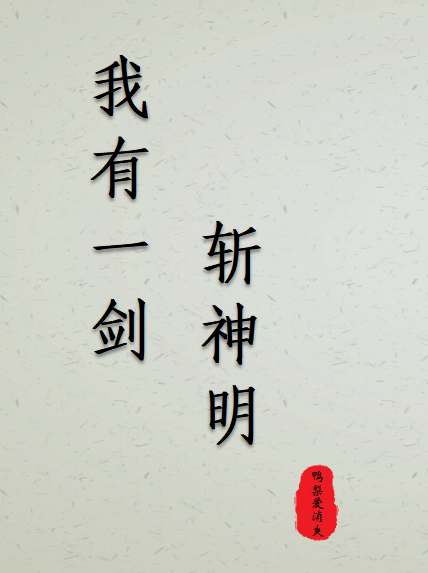 我有一剑
斩神明
鸭梨爱消失